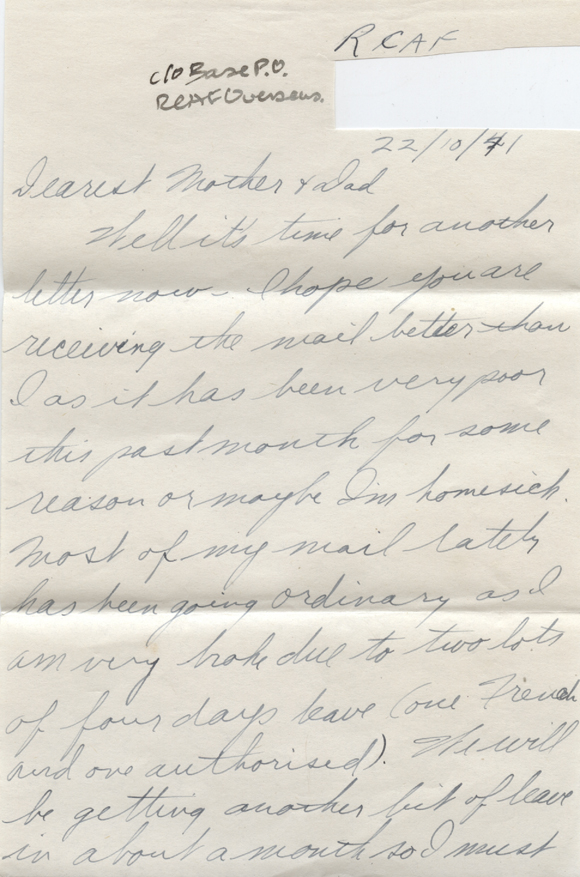 RCAF
c/o Base P.O.
RCAF Overseas.
22/10/41
Dearest Mother & Dad
Well it's time for another
letter now - I hope you are
receiving the mail better than
I as it has been very poor
this past month for some
reason or maybe I'm homesick.
Most of my mail lately
has been going ordinary as I
am very broke due to two lots
of four days leave (one French
and one authorised). We will
be getting another bit of leave
in about a month so I must